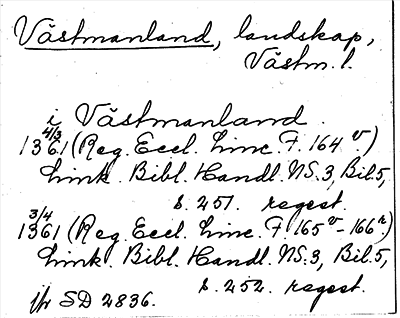 Västmanland, landskap,
Västm. l.
i Västmanland.
4/3
1361 (Reg. Eccl. Linc. F. 164 v.)
Link. Bibl. Handl. NS. 3, Bil. 5,
s. 251. regest.
3/4
1361 (Reg. Eccl. Linc. F 165 v - 166 r)
Link. Bibl. Handl. NS. 3, Bil. 5,
s. 252. regest.
SD 2836.